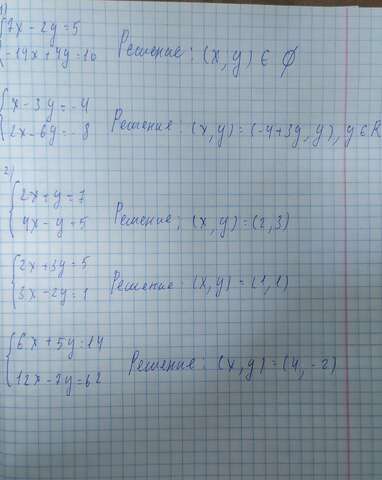 1)
{7x - 2y = 5
-14x + 4y = 10 Решение: (x, y) ∈ ∅
{x - 3y = -4
2x - 6y = -8 Решение: (x, y) = (-4+3y, y), y ∈ R
2)
{2x + y = 7
4x - y = 5 Решение: (x, y) = (2, 3)
{2x + 3y = 5
3x - 2y = 1 Решение: (x, y) = (1, 1)
{6x + 5y = 14
12x - 7y = 62 Решение: (x, y) = (4, -2)